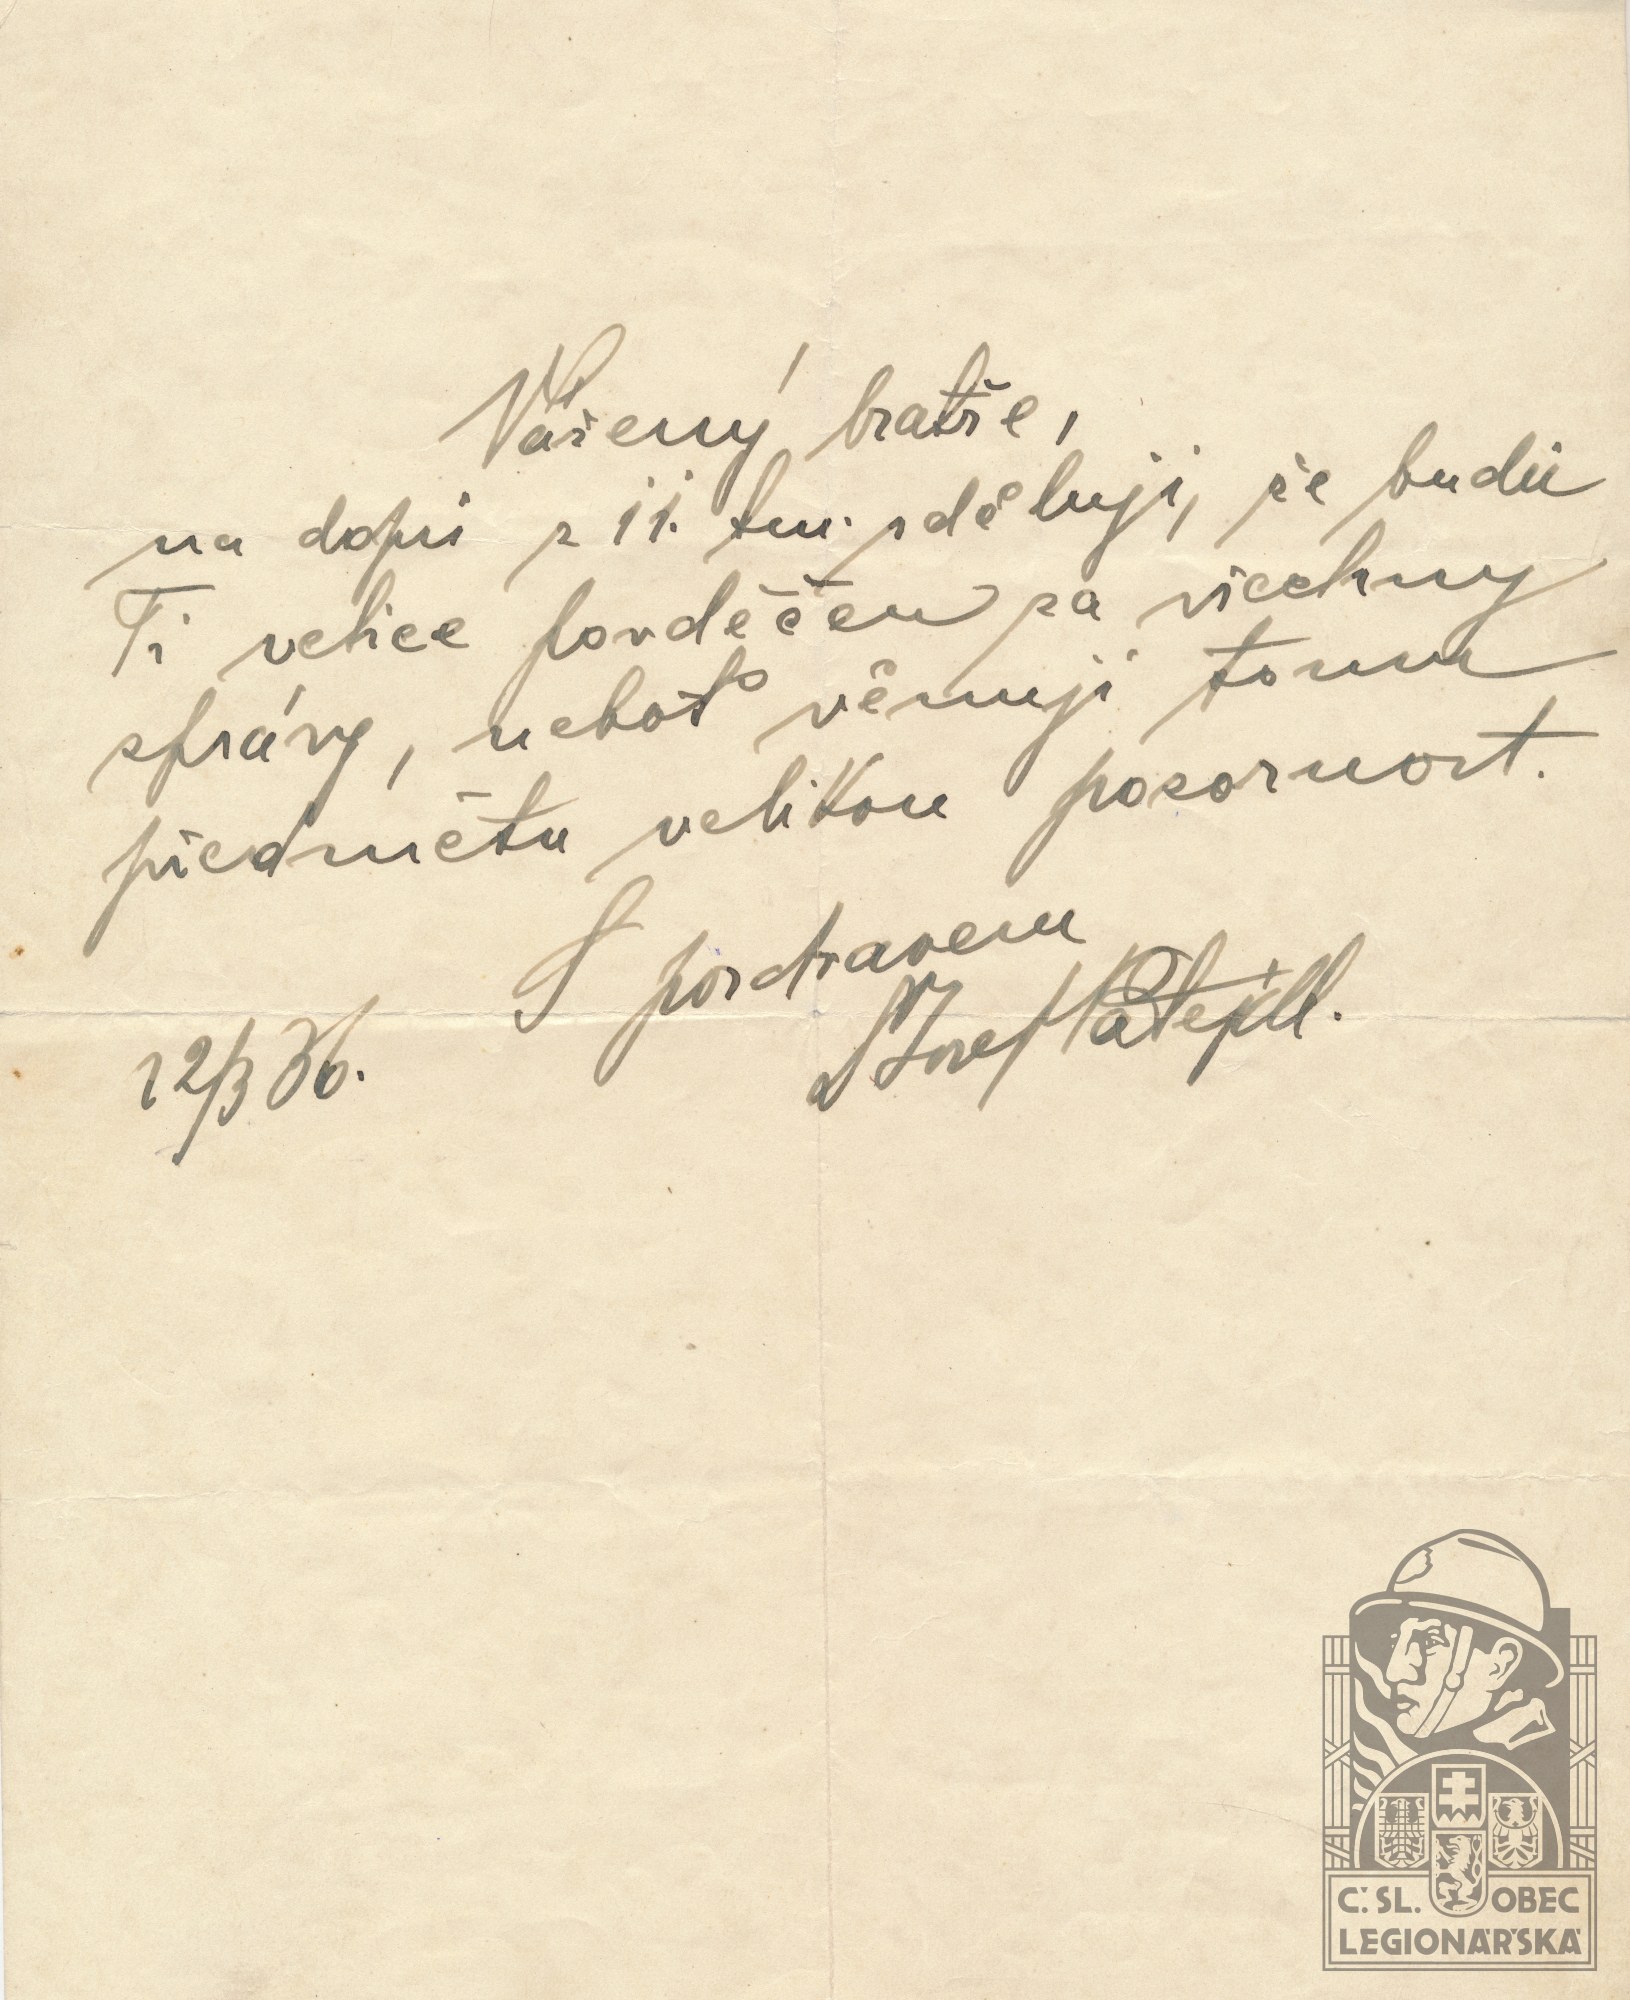 Vážený bratře,
na dopis z 11. t.m. sděluji, že budu
Ti velice povděčen za všechny
zprávy, neboť věnuji tomu
předmětu velikou pozornost.
S pozdravem
Josef Patejdl.
12/3 36.
Č. SL. OBEC
LEGIONÁŘSKÁ